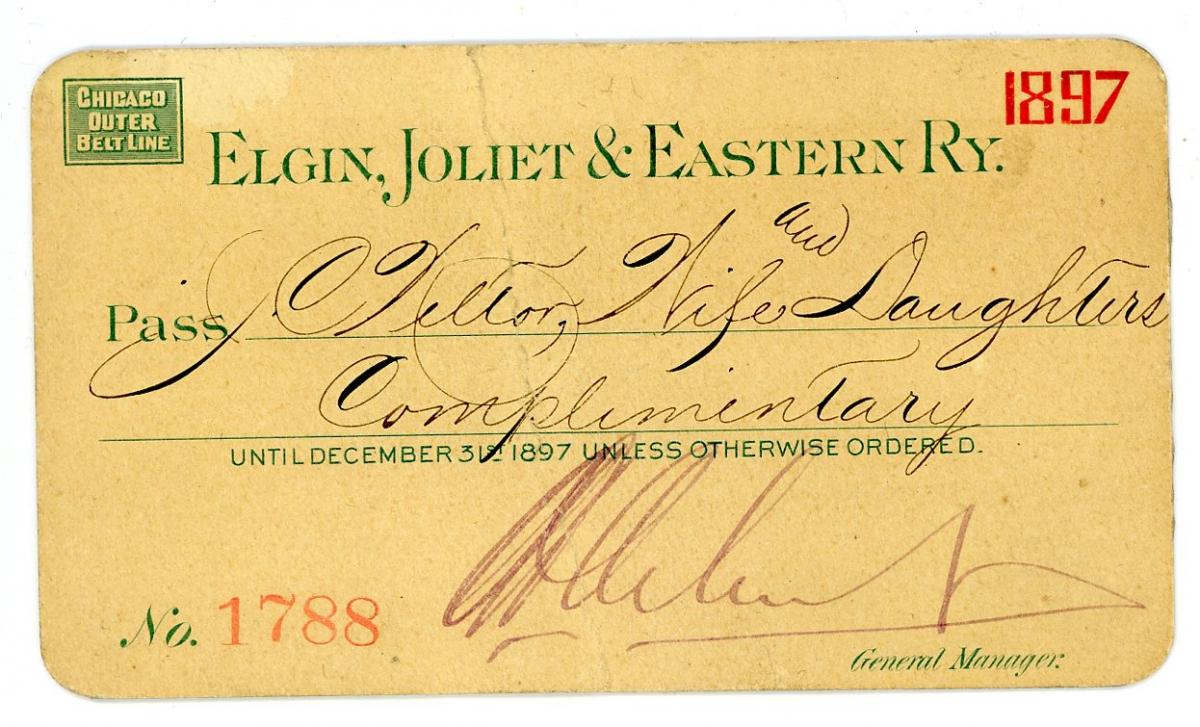 CHICAGO
OUTER
BELT LINE
1897
ELGIN, JOLIET & EASTERN RY.
Pass J. C. Welton, Wife and Daughters
Complimentary
UNTIL DECEMBER 31ST 1897 UNLESS OTHERWISE ORDERED.
No. 1788
General Manager.